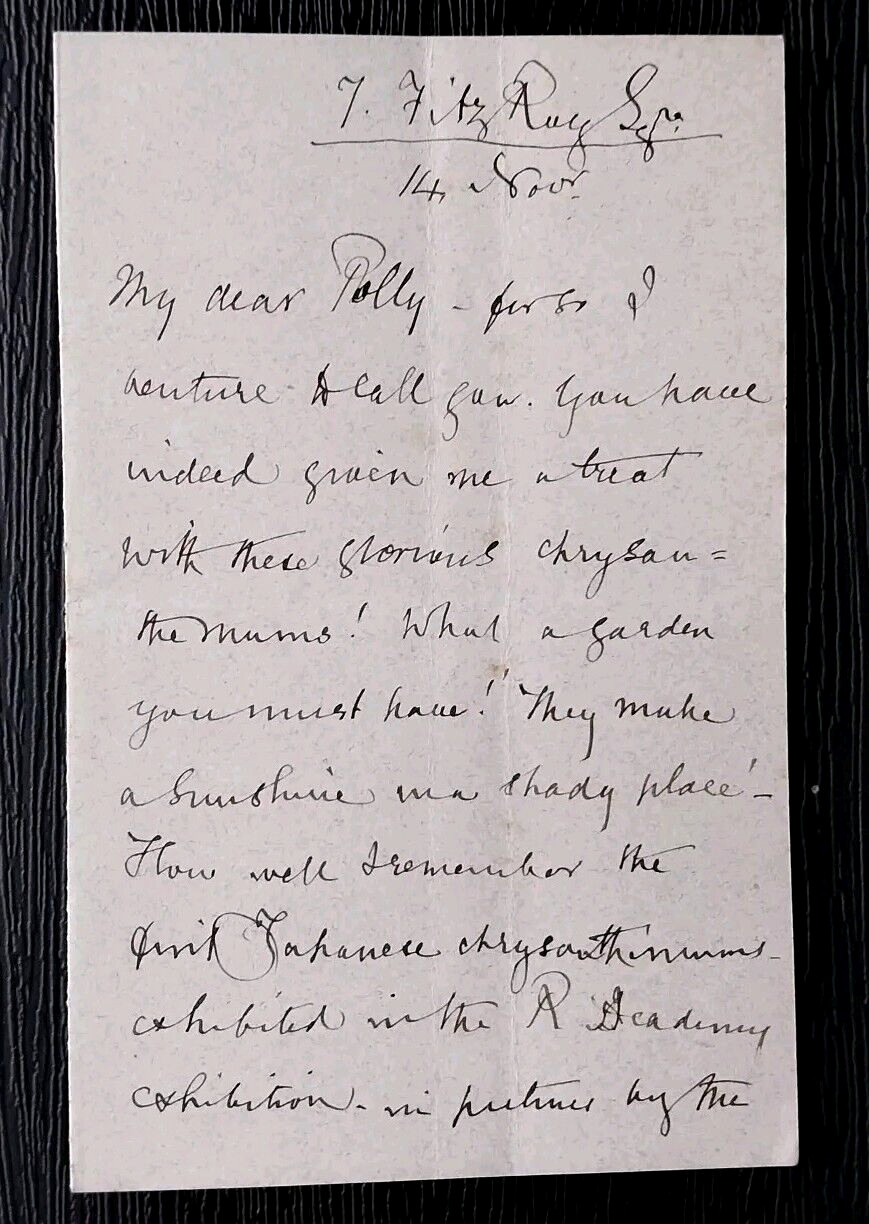 7. Fitz Roy Sqre
14 Novr
My dear Polly - for so I
venture to call you. You have
indeed given me a treat
with these glorious chrysan=
themums! What a garden
you must have! They make
a sunshine in a shady place' -
How well I remember the
first Japanese chrysanthimums -
exhibited in the R Academy
exhibition - in pictures by the